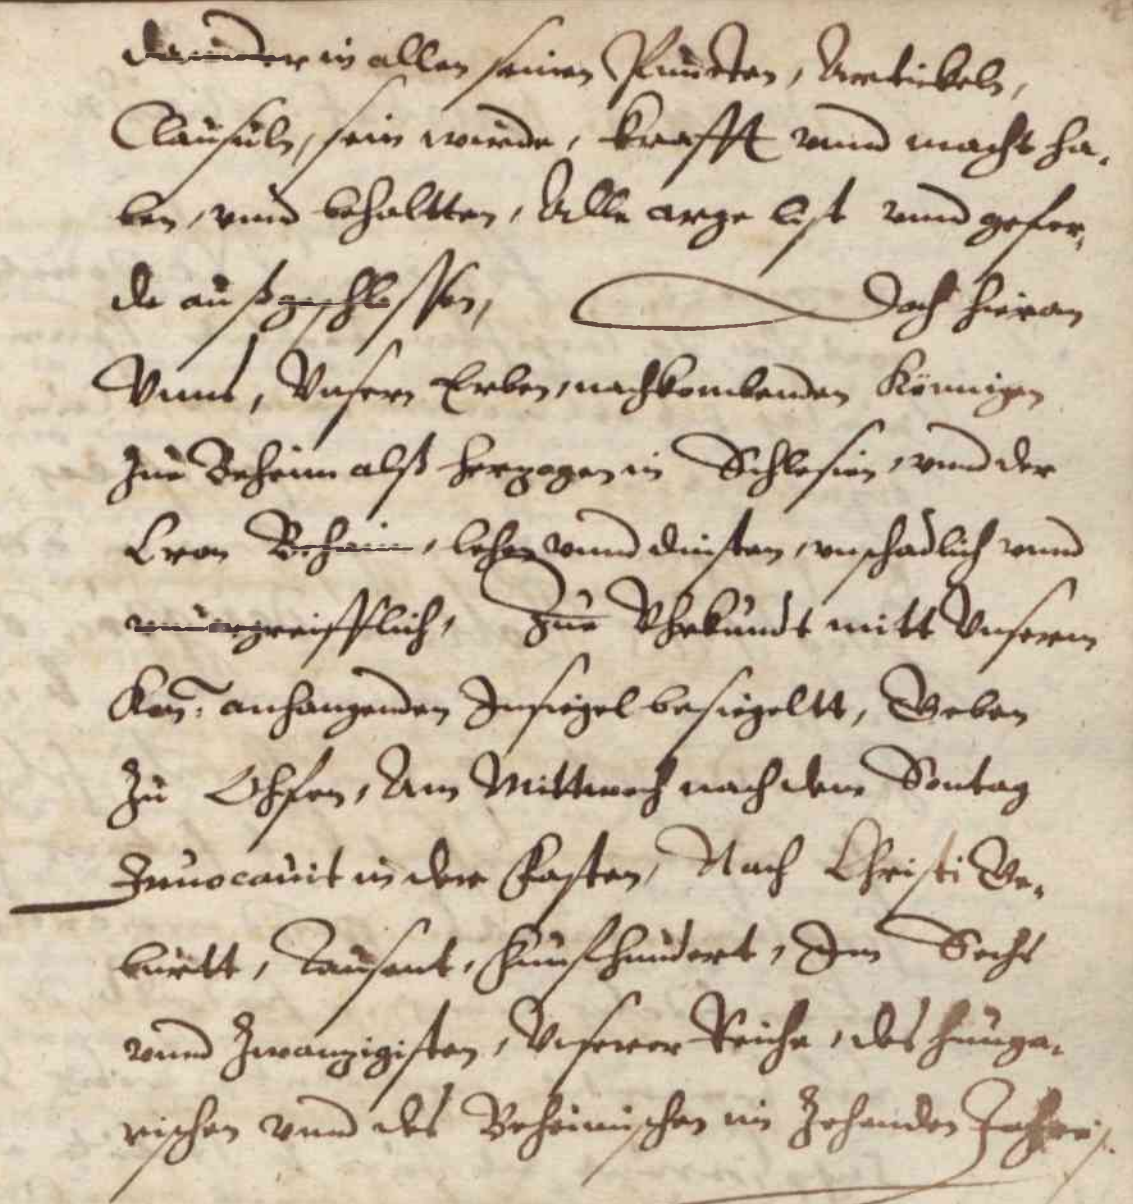 darinder in allen seinen Puncten, Artickeln,
Clausuln, sein wurde, krafft vnnd macht ha-
ben, vnnd behaltten, Alle arge list vnnd gefer-
de außgeschlossen, Doch hieran
Vnns, Vnsern Erben, nachkombenden Königen
Zue Beheim alß Herzogen in Schlesien, vnnd der
Cron Behaim, lehen vnnd diensten, vnschädlich vnnd
vnuorgreifflich, Zue Vhrkundt mitt Vnserm
Kön: anhangenden Insiegel besiegeltt, Geben
Zu Ohfen, Am Mittwoch nach dem Sontag
Inuocauit in der Fasten, Nach Christi Ge-
burtt, Tausent, Funfhundert, Im Sechs
vnnd Zwanzigisten, Vnserer Reiche, des Hunga-
rischen vnnd des Beheimischen im Zehenden Jahre.